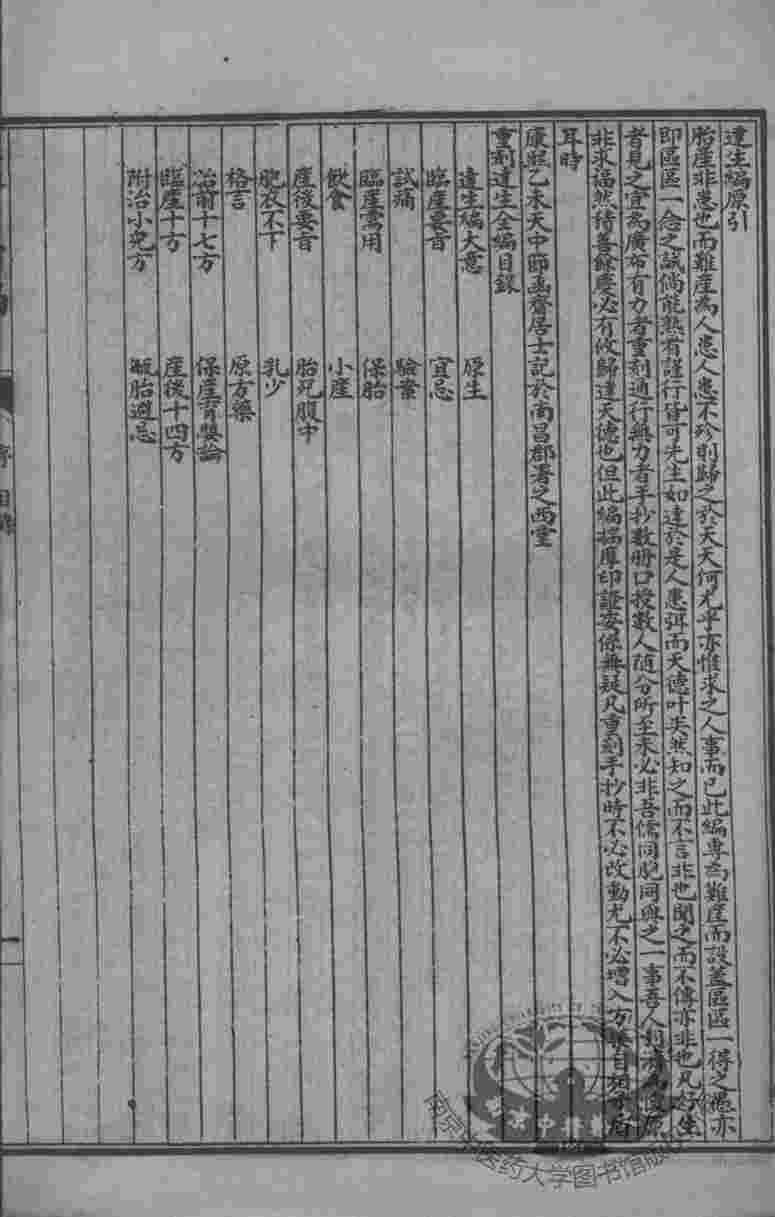 達生編原引
胎產非患也而難產為人患人患不珍則歸之於天天何尤乎亦惟求之人事而已此編專為難產而設蓋區區一得之愚亦
即區區一念之誠倘能熟看謹行皆可先生如達於是人患弭而天德叶矣然知之而不言非也聞之而不傳亦非也凡好生
者見之宜為廣布有力者重刻通行無力者手抄數冊口授數人隨分所至未必非吾儒同胞同與之一事吾人利濟為懷原
非求福然積善餘慶必有攸歸達天德也但此編揣摩印證妥保無疑凡重刻手抄時不必改動尤不必增入方藥自
耳時
康熙乙未天中節亟齋居士記於南昌郡署之西堂
重刻達生全編目錄
達生編大意 原生
臨產要旨 宜忌
試痛 驗案
臨產需用 保胎
飲食 小產
產後要旨 胎死腹中
胞衣不下 乳少
格言 原方藥
治前十七方 保產育嬰論
臨產十方 產後十四方
附治小兒方 胎避忌
序 目錄
一
南京中醫藥
南京中医药大学图书馆